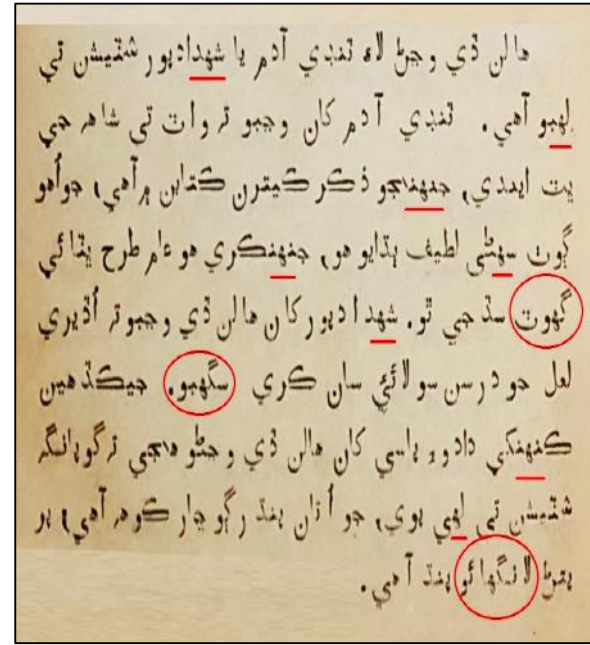 هالن ڏي وڃڻ لاءِ ٽنڊي آدم يا شهدادپور شٽيشن تي
لهبو آهي. ٽنڊي آدم کان وڃبو تہ واٽ تي شاهہ جي
ڀٽ ايندي, جنهنجو ذڪر ڪيترن ڪتابن ۾ آهي, جو اُهو
ڳوٺ سهڻي لطيف ٻڌايو هو, جنهنڪري هو عام طرح ڀٽائي
گهوٽ سڏجي ٿو. شهدادپور کان هالن ڏي وڃبو تہ اُڏيري
لعل جو درسن سولائيءَ سان ڪري سگهبو. جيڪڏهين
ڪنهنکي دادوءِ پاسي کان هالن ڏي وڃڻو هجي تہ گوپانگ
شٽيشن تي لهي پوي, جو اُتان پنڌ رڳو چار ڪوهہ آهي, پر
پتڻ لانگهائو پنڌ آهي.